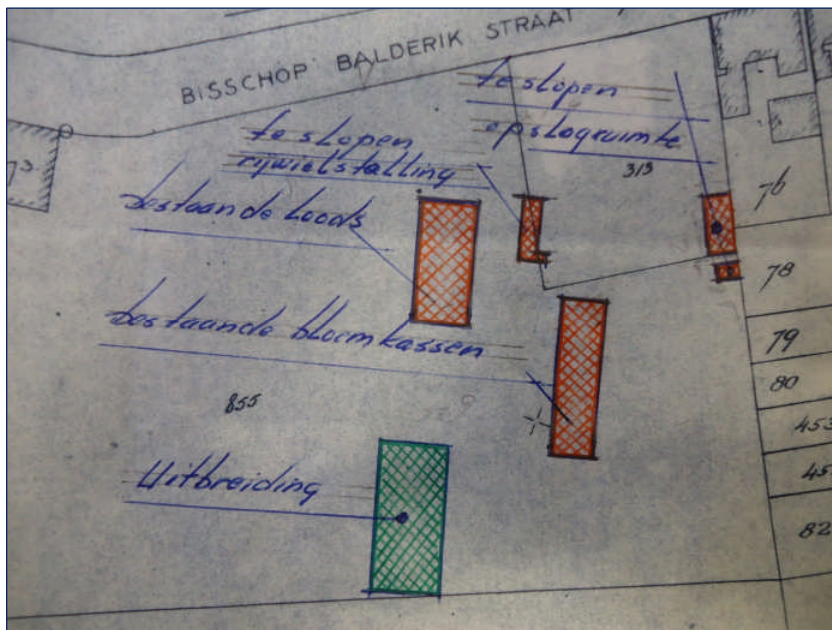 BISSCHOP BALDERIK STRAAT
te slopen
opslagruimte
te slopen
rijwielstalling
313
76
73
bestaande loods
78
bestaande bloemkassen
79
80
855
453
Uitbreiding
45
82